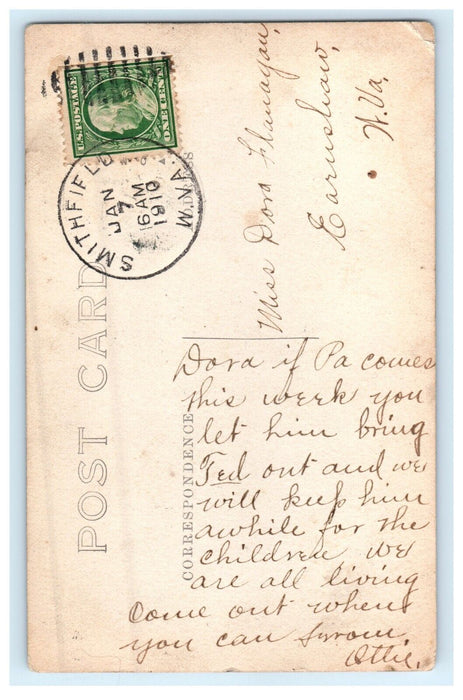 U.S. POSTAGE
ONE CENT
SMITHFIELD W.VA.
JAN
7
6 AM
1910
POST CARD
CORRESPONDENCE
Miss Dora Flanagan,
Earnshaw,
W. Va.
Dora if Pa comes
this week you
let him bring
Ted out and we
will keep him
awhile for the
children we
are all living
come out when
you can from
Ottie.